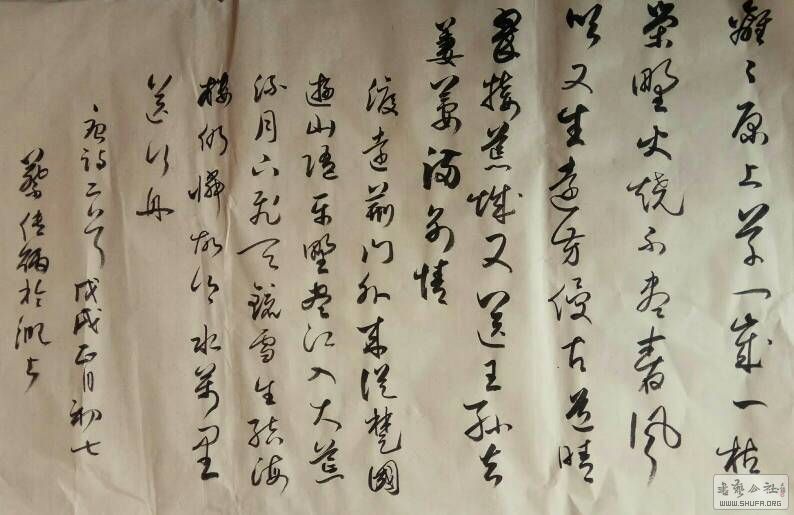 離〻原上草一歲一枯
榮野火燒不盡春風
吹又生遠芳侵古道晴
翠接荒城又送王孫去
萋萋滿別情
渡遠荊門外來從楚國
遊山隨平野盡江入大荒
流月下飛天鏡雲生結海
樓仍憐故鄉水萬里
送行舟
唐詩二首 戊戌正月初七
書藝公社
WWW.SHUFA.ORG